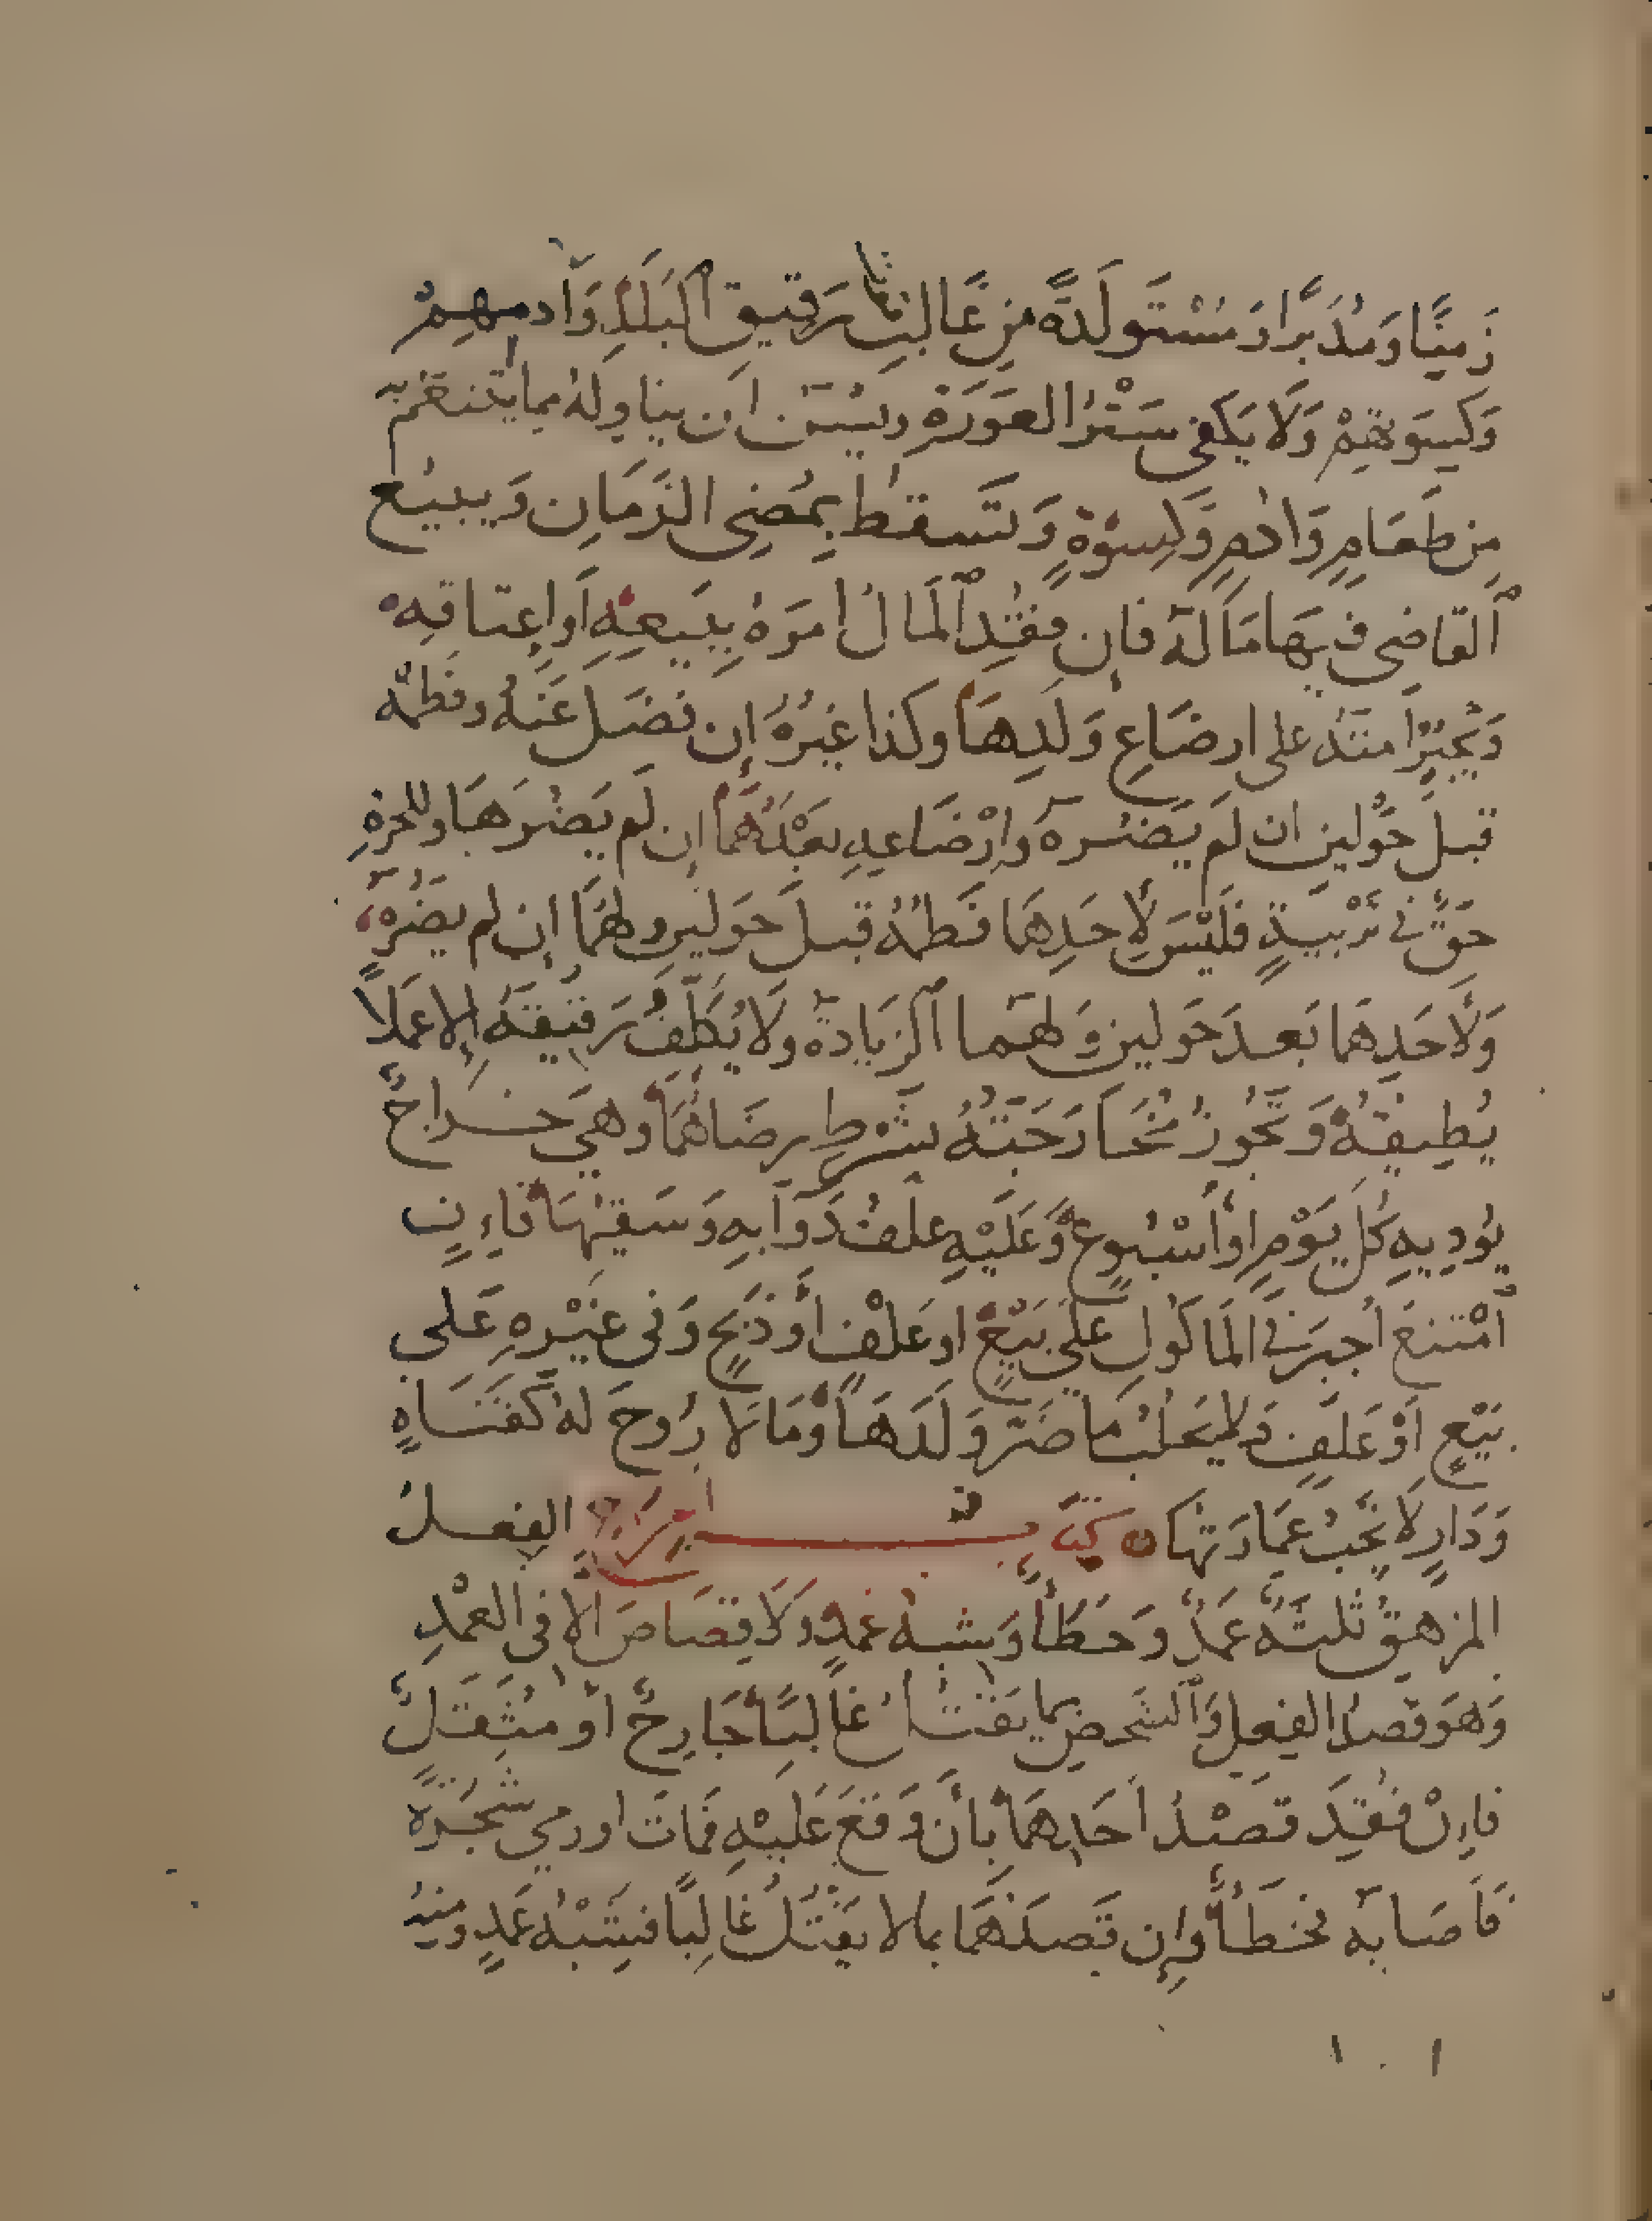 زَمِنًا وَمُدَبَّرًا وَمُسْتَوْلَدَةً مِن غَالِبِ رَقِيقِ ٱلبَلَدِ وَأُدمِهِمْ
وَكِسوَتِهِمْ وَلَا يَكفِي سَتْرُ العَورَةِ وَيُسَنُّ ان يناوِلَهُ مِمَا يَتنعَّمُ بِهِ
مِن طَعَامٍ وَادُمٍ وَكِسوَةٍ وَتَسقُطُ بِمُضِي الزَمَانِ وَيبيعُ
ٱلقَاضِي فيهَا مَالَهُ فَان فُقِدَ ٱلمَالُ امَرَهُ بِبَيعِهِ أَو إِعتاقِهِ
وَيُجبِرُ أمتَهُ على ارضَاعِ وَلَدِهَا وكذا غيرُهُ إن فضَلَ عَنهُ وفَطمِهِ
قبلَ حَوْلينِ ان لَم يَضُرَّهُ وَإِرْضَاعِهِ بعْدَهُمَا إن لَم يَضُرَّهَا وللحُرَّةِ
حَقٌ في تَرْبيَةٍ فَلَيْسَ لِأَحَدِهمَا فَطمُهُ قبلَ حَولينِ ولهُمَا إن لم يَضُرّهُ
وَلأَحَدِهمَا بَعدَ حَولينِ وَلَهُما ٱلزِيَادةُ وَلا يُكَلِّفُ رَقيقَهُ إلا عَمَلًا
يُطِيقُهُ وَتَجُوزُ مُخَارَجَتُهُ بشَرْطِ رِضَاهُمَا وَهِيَ خَراجٌ
يُودِيهِ كُلَ يَوْمٍ اوأُسْبُوعٍ وَعَلَيْهِ علفُ دَوَابِهِ وَسَقيُهَا فاءِنِ
ٱمْتنعَ أُجبِرَ في المَاكُولِ عَلَى بَيْعٍ او عَلْفٍ أَو ذَبْحٍ وَفي غَيْرِهِ عَلى
بَيْعٍ اَوْ عَلفٍ وَلا يَحلُبُ مَا ضَرَّ وَلَدَهَا وَمَا لَا رُوحَ لهُ كَقَنَاةٍ
وَدَارٍ لَا تَجبُ عِمَارَتهَا كتَابُ ٱلجِرَاحِ الفِعلُ
المزهِقُ ثلثَةٌ عَمدٌ وَخَطَأٌ وَشبهُ عَمدٍ وَلَا قِصَاصَ الَّا في العَمْدِ
وَهوَ قصدُ الفِعلِ وَٱلشَخصِ بما يَقتُلُ غَالبًا جَارِحٌ أو مُثَقَّلٌ
فاءِنْ فُقِدَ قصْدُ أَحَدِهمَا بأَن وَقعَ عَلَيْهِ فَمَاتَ اورمي شَجَرَةً
فَأَصَابَهُ فخَطَأٌ وإِن قَصَدَهُمَا بمالا يَقْتُلُ غَالِبًا فشِبْهُ عَمدٍ ومنهُ